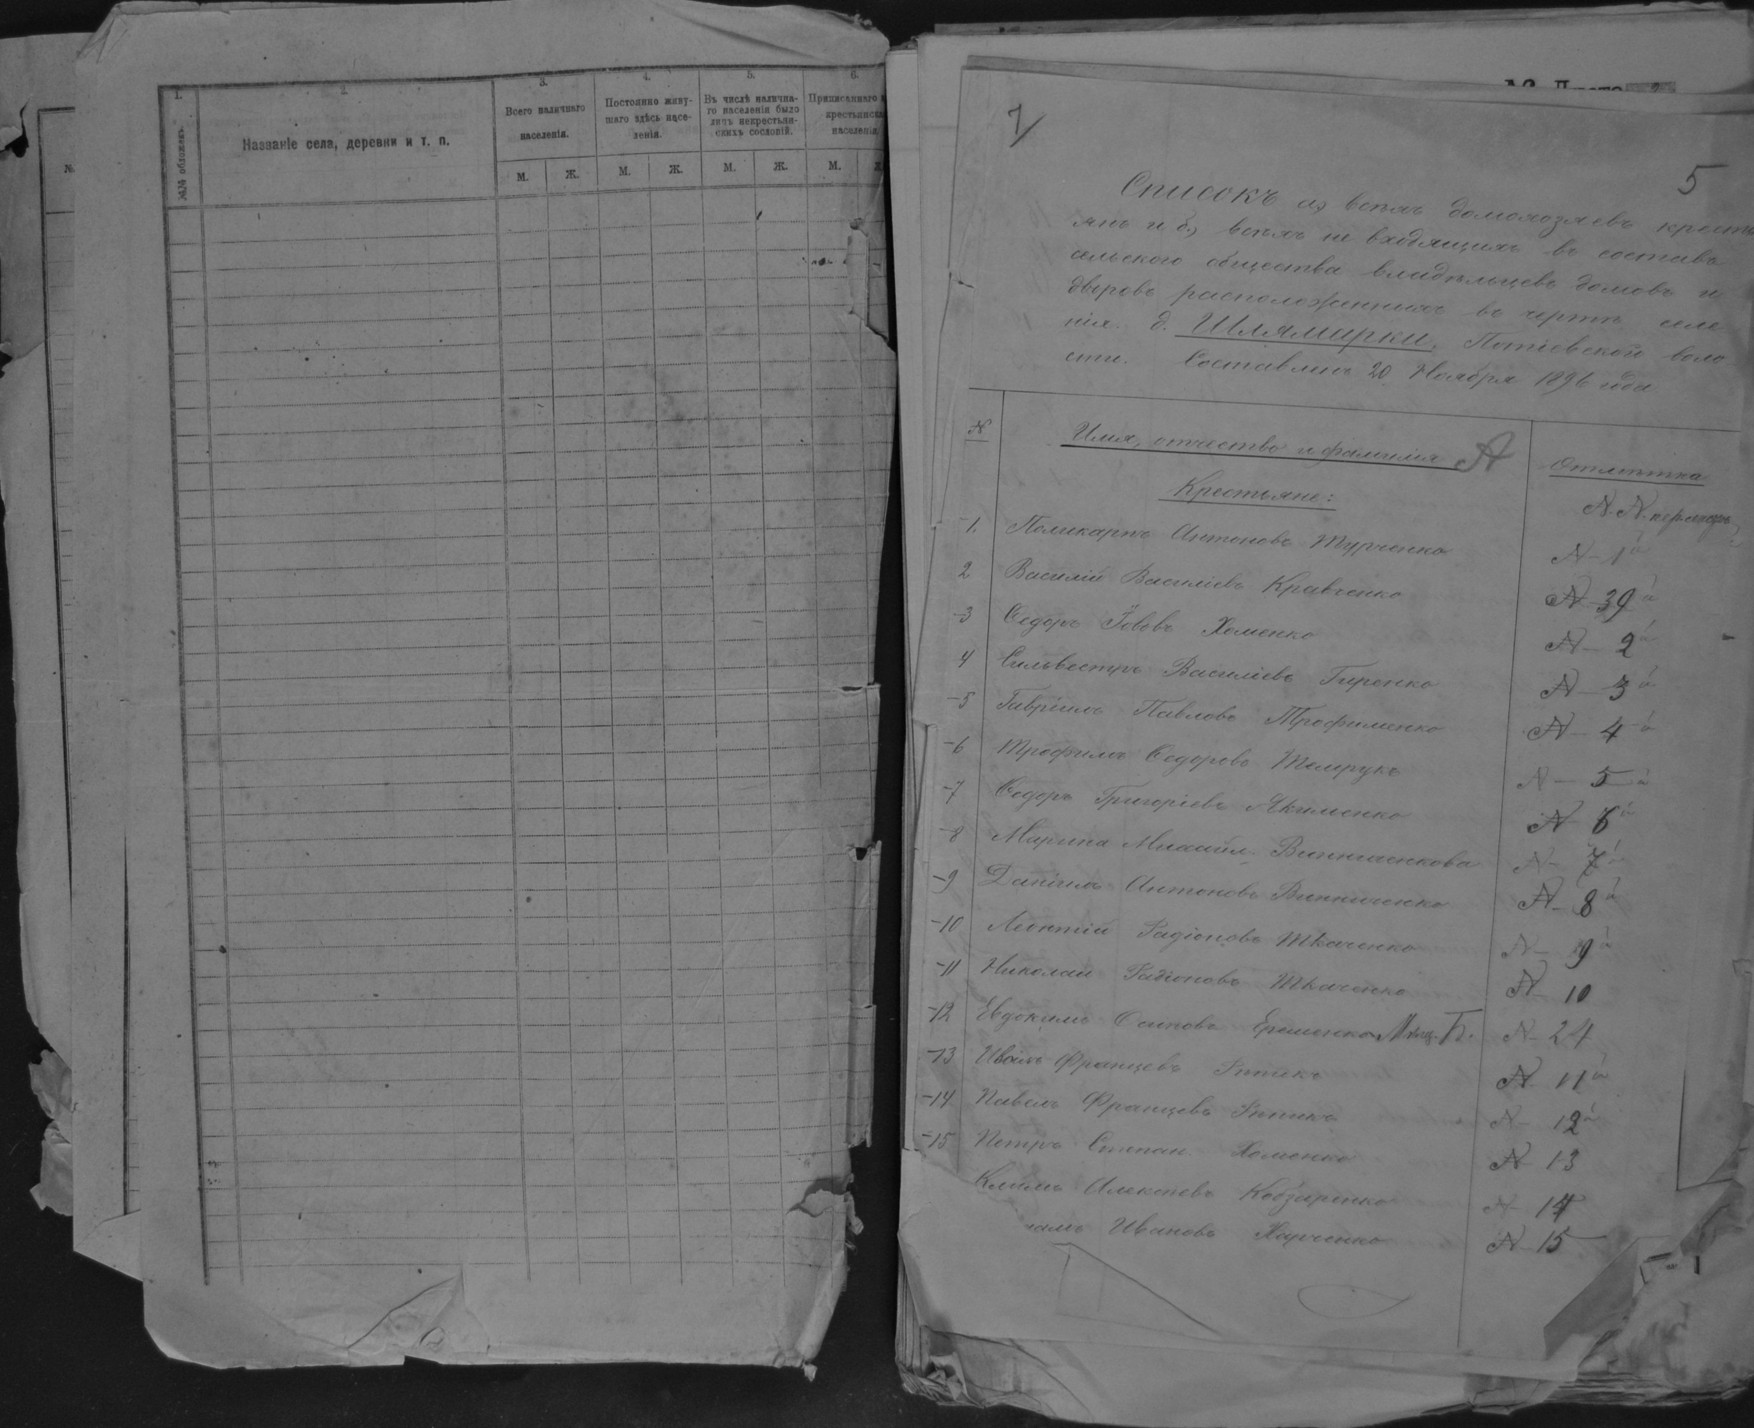 1.
2.
3.
4.
5.
6.
№№ обложекъ.
Названіе села, деревни и т. п.
Всего наличнаго
населенія.
Постоянно живу-
щаго здѣсь насе-
ленія.
Въ числѣ налична-
го населенія было
лицъ некрестьян-
скихъ сословій.
Приписаннаго
крестьянска
населенія
М. Ж. М. Ж. М. Ж. М.
№
5
Списокъ а) всѣхъ домохозяевъ кресть
янъ и б) всѣхъ не входящихъ въ составъ
сельского общества владѣльцевъ домовъ и
дворовъ расположенныхъ въ чертѣ селе
нія. д. Шлямарки, Потіевской воло
сти. Составленъ 20 Ноября 1896 года
№ Имя, отчество и фамилія А Отмѣтка
Крестьяне: N.N.
1. Поликарпъ Антоновъ Турченко N 1
2 Василій Василіевъ Кравченко N 39
3 Ѳедоръ Іовевъ Хоменко N 2
4 Сильвестръ Василіевъ Гиренко N 3
5 Гавріилъ Павловъ Трофименко N 4
6 Трофимъ Ѳедоровъ Темрукъ N 5
7 Ѳедоръ Григоріевъ Якименко N 6
8 Марина Михайл. Винниченкова N 7
9 Даніилъ Антоновъ Винниченко N 8
10 Леонтій Радіоновъ Ткаченко N 9
11 Николай Радіоновъ Ткаченко N 10
12 Евдокимъ Осиповъ Еременко Мѣщ. Б. N 24
13 Иванъ Францевъ N 11
14 Павелъ Францевъ N 12
15 Петръ Степан. Хоменко N 13
Климъ Алексѣевъ Кобзаренко N 14
Ивановъ Харченко N 15